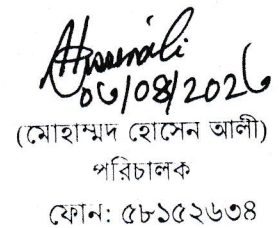 Hussenali
06/08/2026
(মোহাম্মদ হোসেন আলী)
পরিচালক
ফোন: ৫৮১৫২৬৩৪